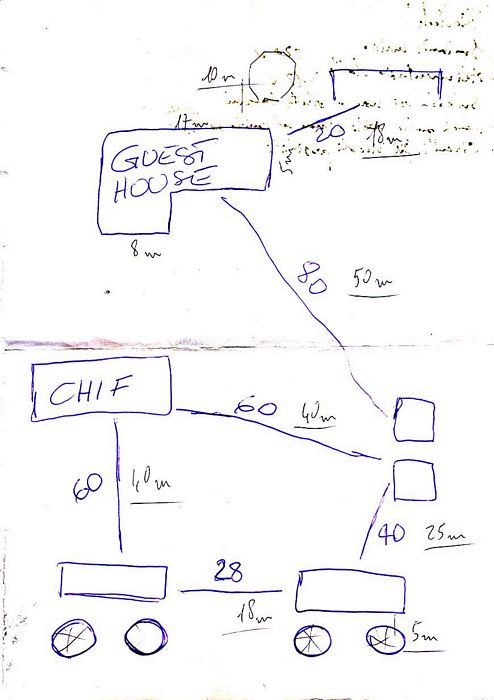 10m
17m
20
18m
GUEST
HOUSE
5m
8m
80
50m
CHIF
60
40m
60
40m
40
25m
28
18m
5m